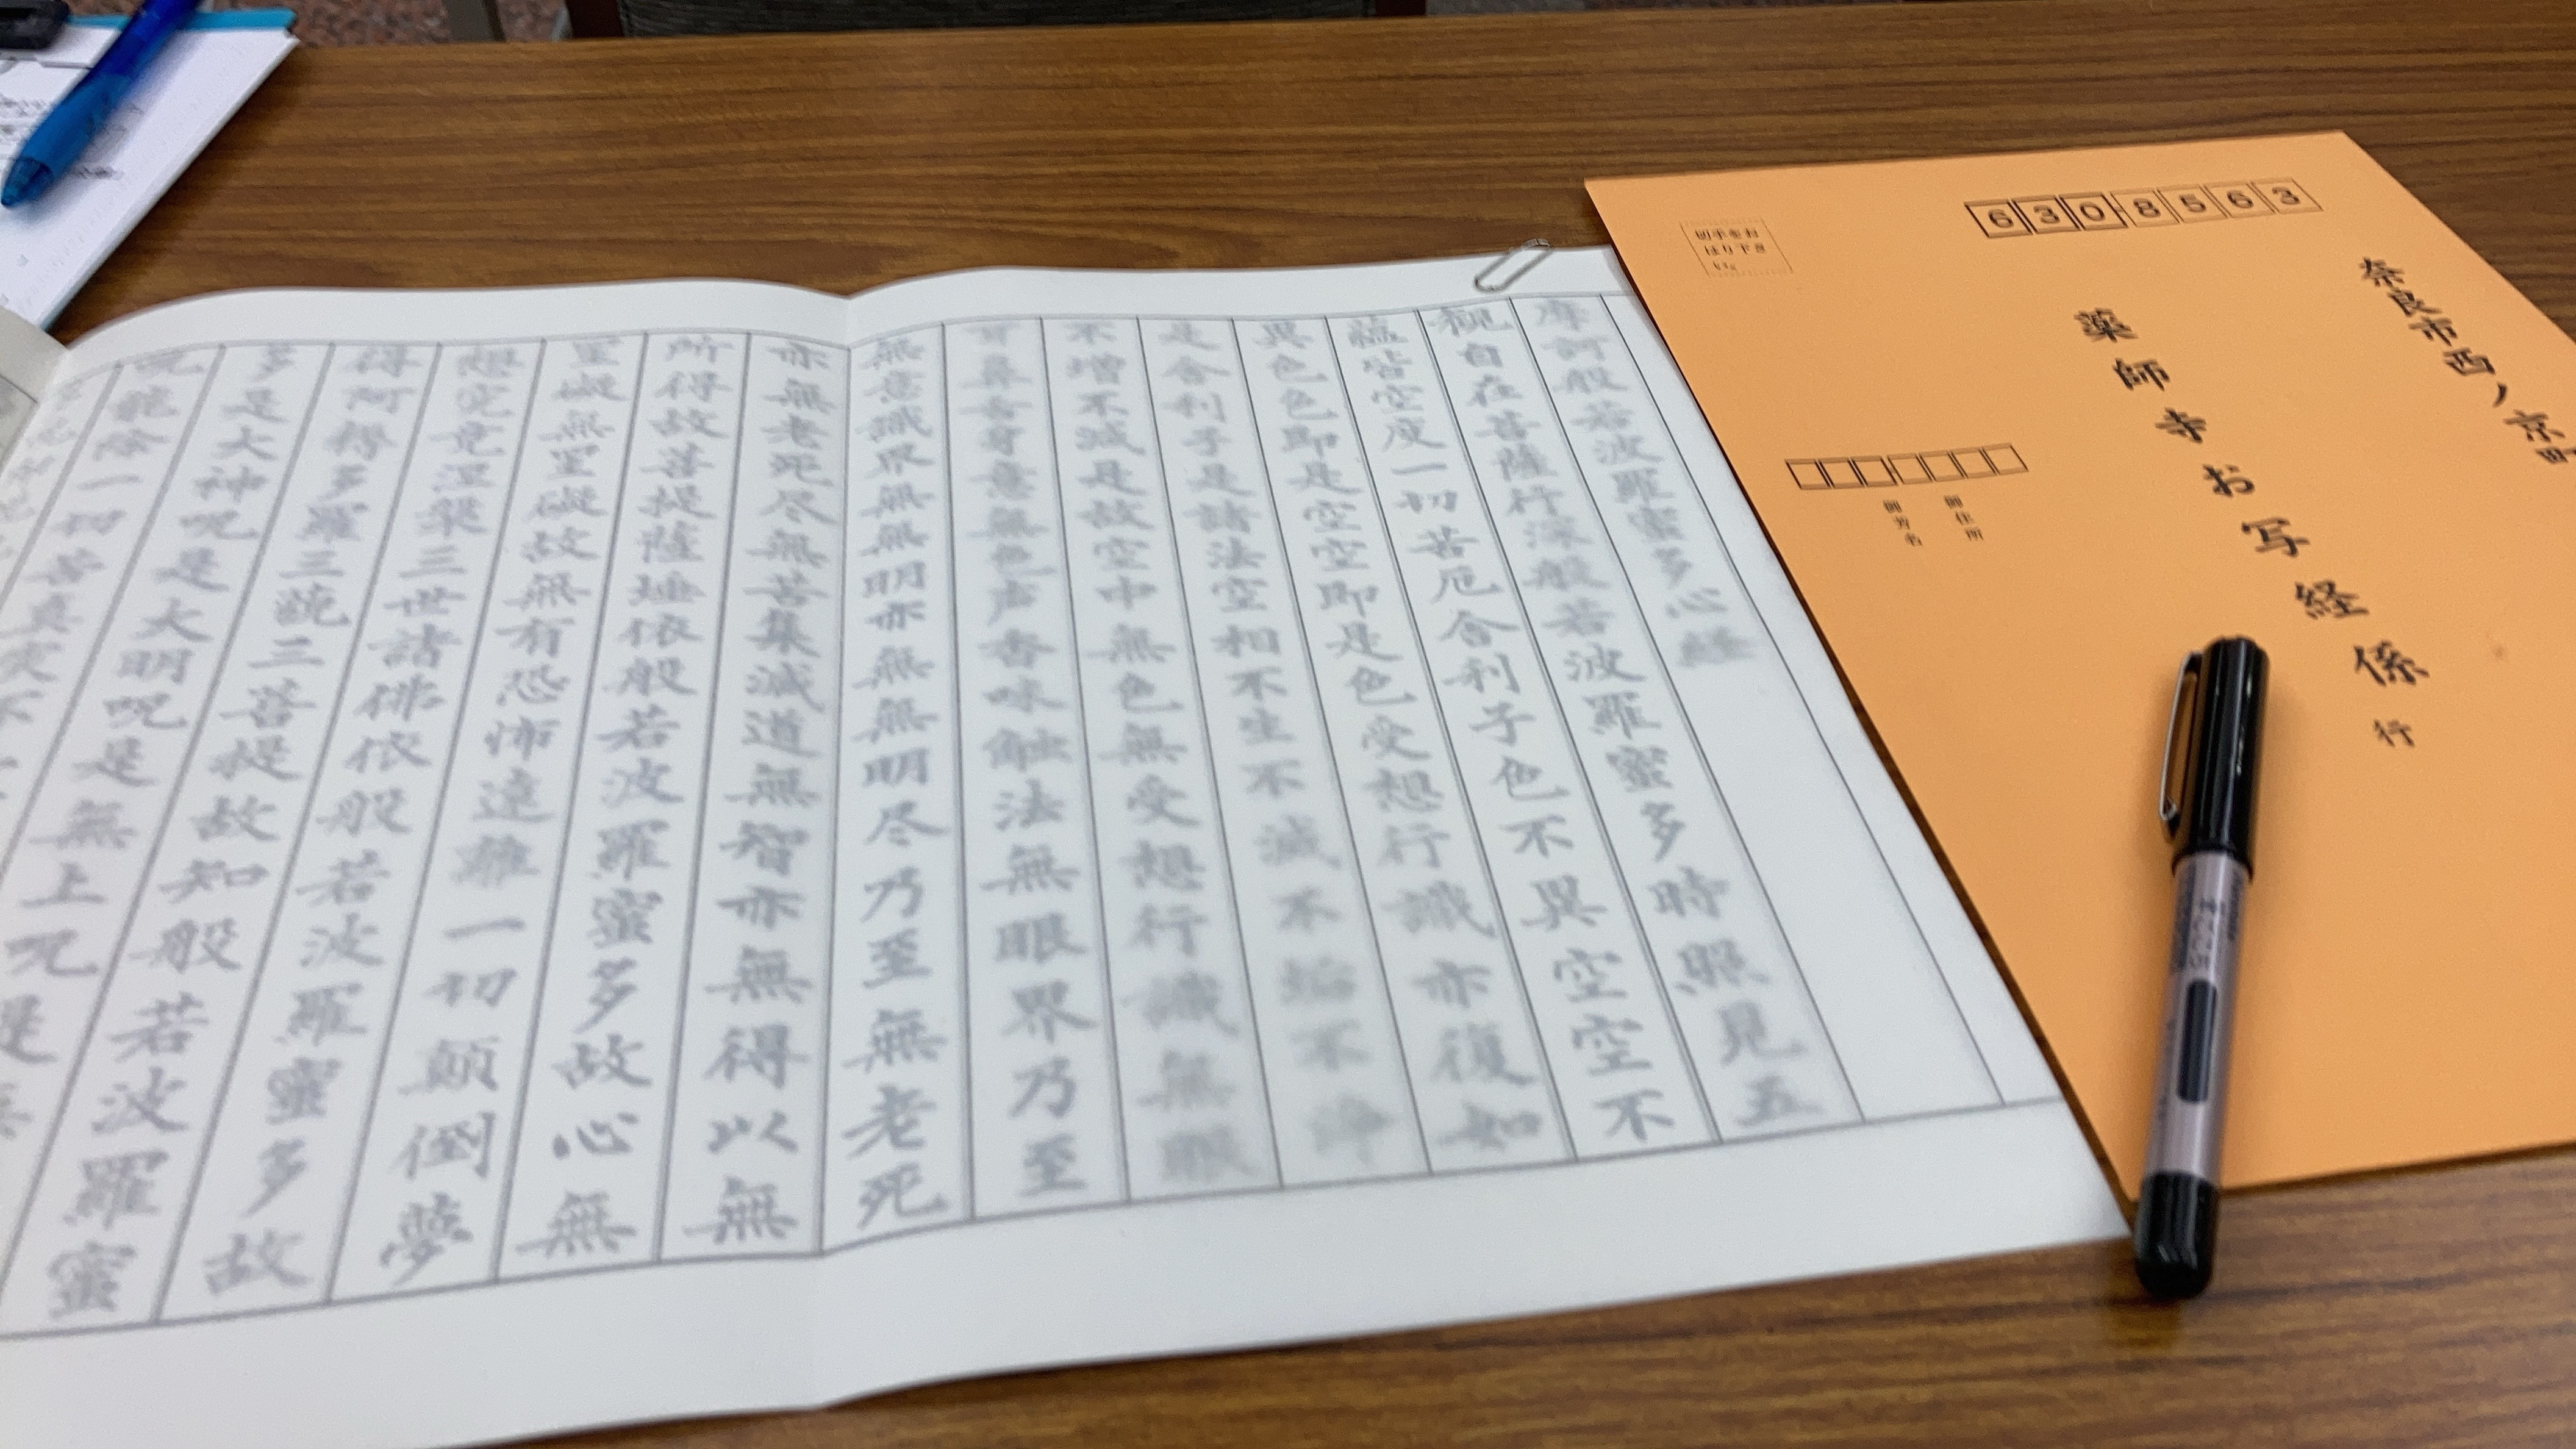 6308563
奈良市西ノ京町
薬師寺お写経係行
切手をお
はり下さ
御住所
御芳名
摩訶般若波羅蜜多心経
観自在菩薩行深般若波羅蜜多時照見五
蘊皆空度一切苦厄舎利子色不異空空不
異色色即是空空即是色受想行識亦復如
是舎利子是諸法空相不生不滅不垢不浄
不増不減是故空中無色無受想行識無眼
耳鼻舌身意無色声香味触法無眼界乃至
無意識界無無明亦無無明尽乃至無老死
亦無老死尽無苦集滅道無智亦無得以無
所得故菩提薩埵依般若波羅蜜多故心無
罣礙無罣礙故無有恐怖遠離一切顛倒夢
想究竟涅槃三世諸佛依般若波羅蜜多故
得阿耨多羅三藐三菩提故知般若波羅蜜
多是大神呪是大明呪是無上呪是無
呪能除一切苦真実不